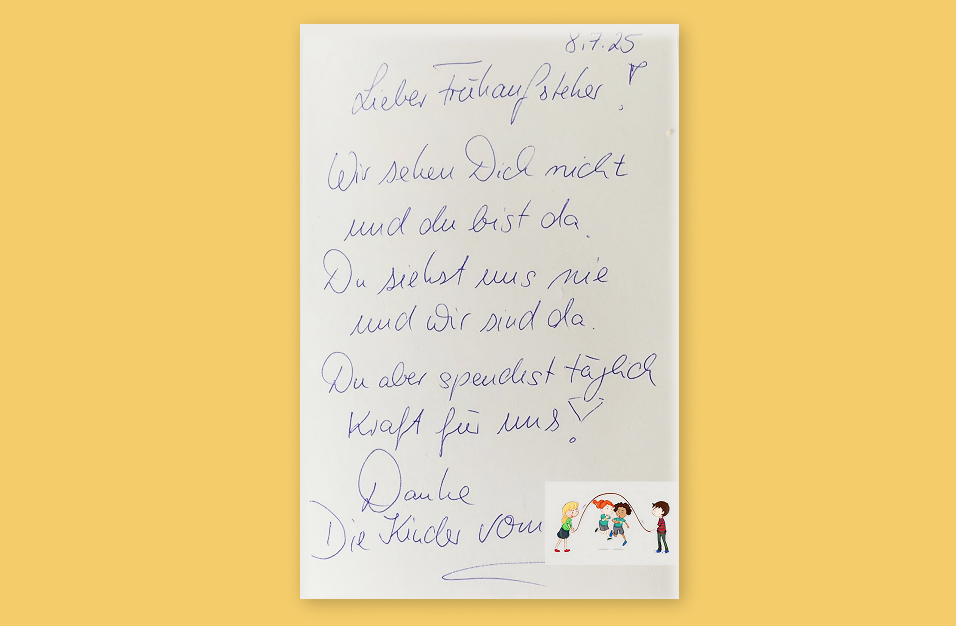 8.7.25
Lieber Frühaufsteher!
Wir sehen Dich nicht
und du bist da.
Du siehst uns nie
und wir sind da.
Du aber spendest täglich
Kraft für uns!
Danke
Die Kinder vom